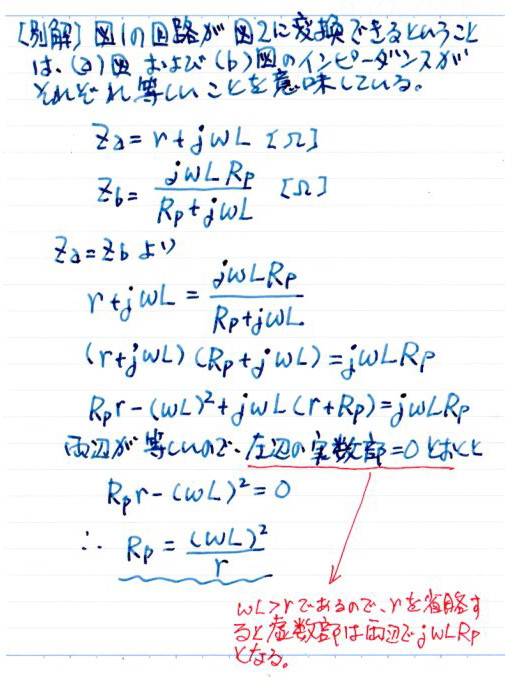 [別解] 図1の回路が図2に変換できるということ
は、(a)図 および(b)図のインピーダンスが
それぞれ等しいことを意味している。
Za = r + jωL [Ω]
Zb = jωLRp / (Rp + jωL) [Ω]
Za = Zb より
r + jωL = jωLRp / (Rp + jωL)
(r + jωL)(Rp + jωL) = jωLRp
Rpr - (ωL)² + jωL(r + Rp) = jωLRp
両辺が等しいので、左辺の実数部=0とおくと
Rpr - (ωL)² = 0
∴ Rp = (ωL)² / r
ωL>rであるので、rを省略す
ると虚数部は両辺でjωLRp
となる。